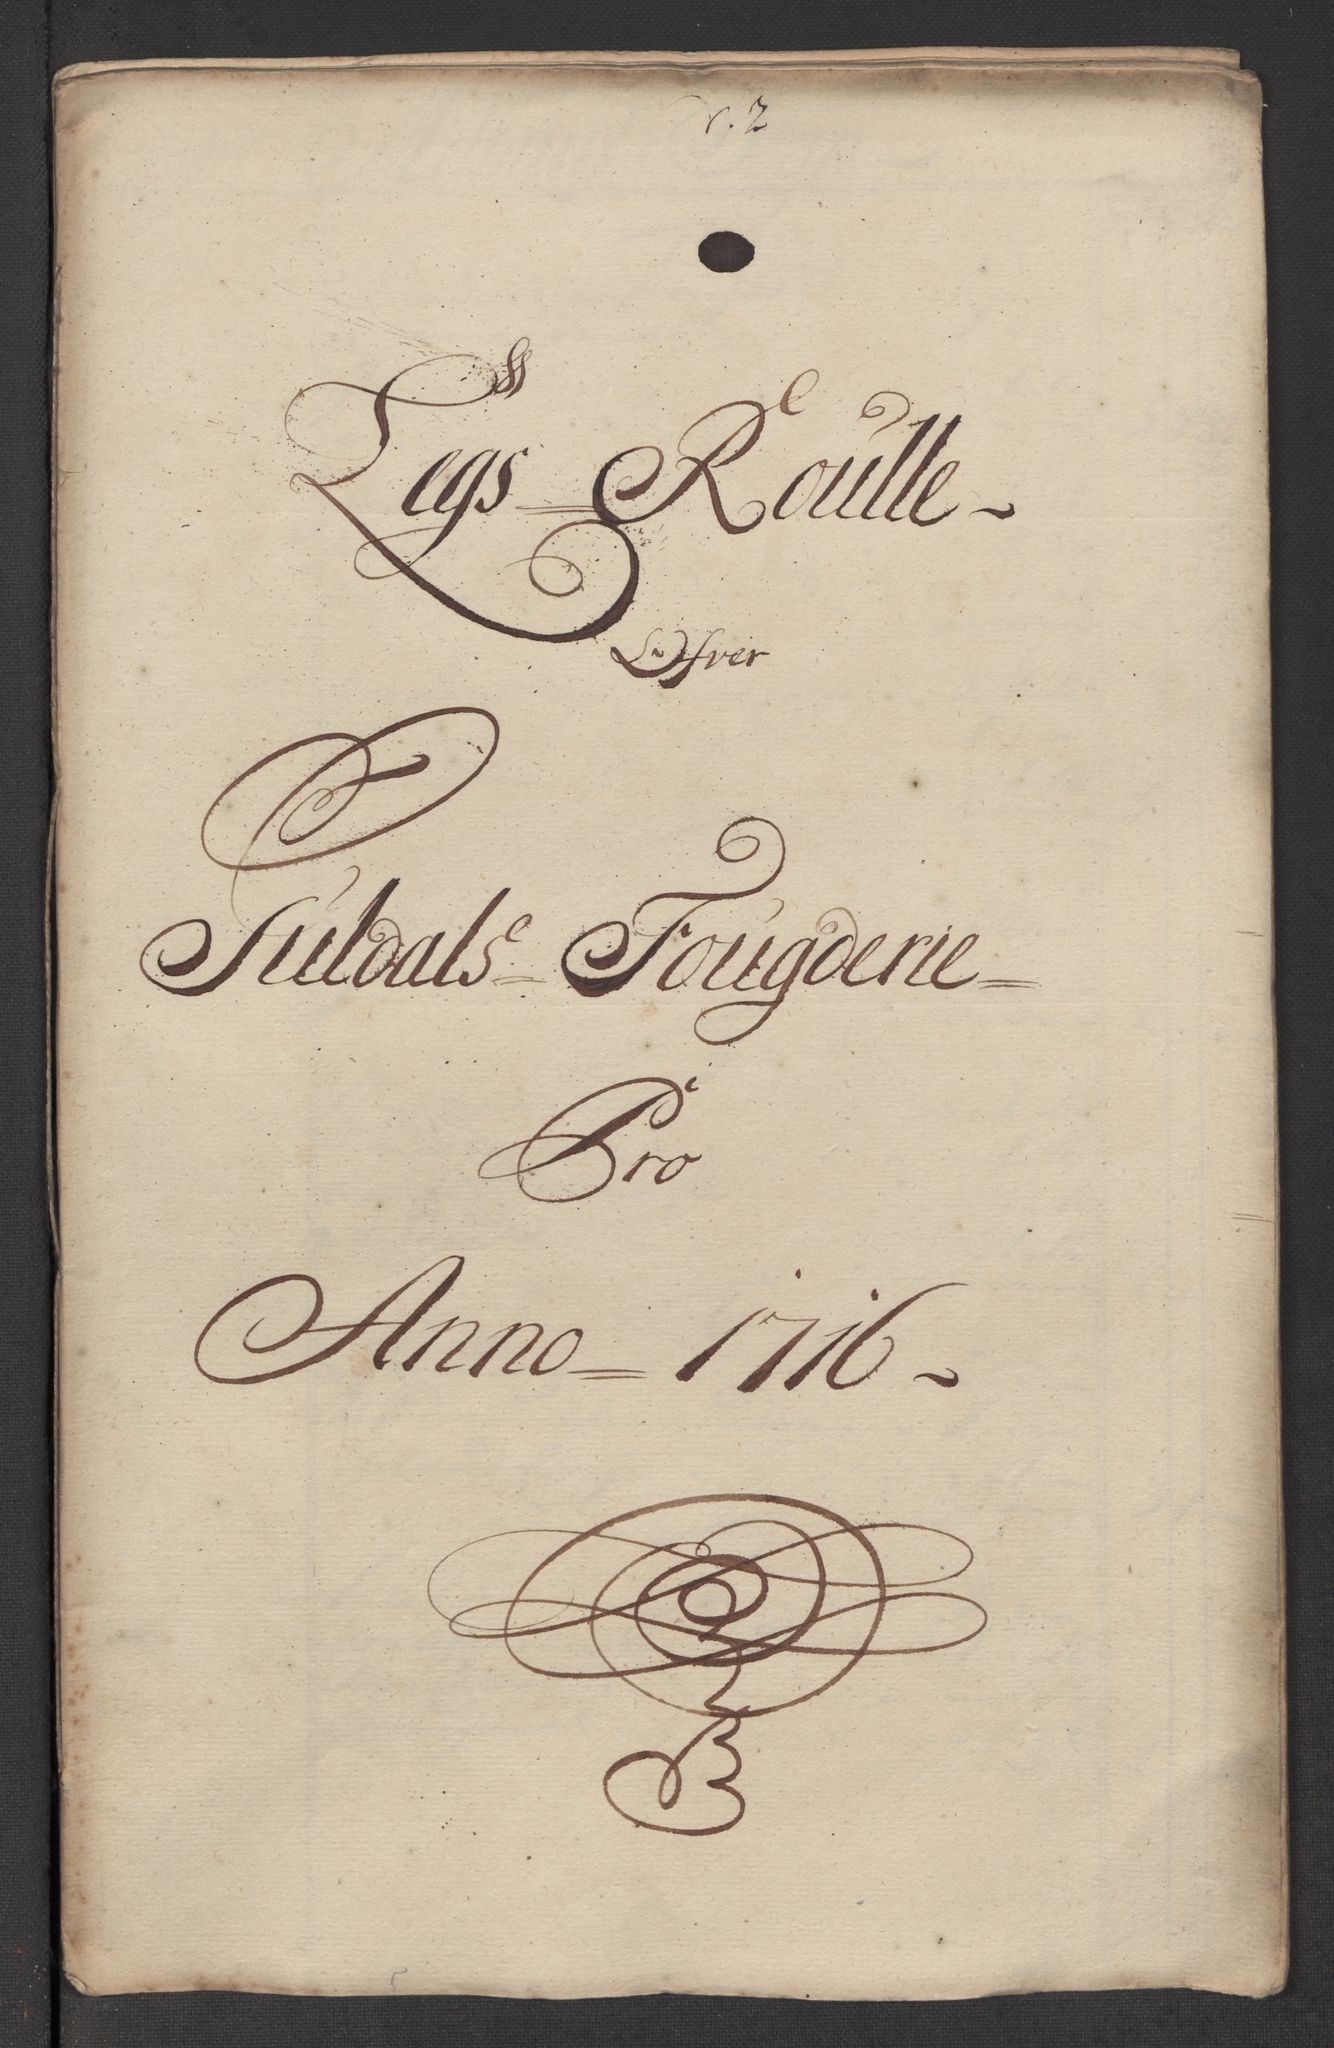 N. 2
Legs Roulle
Ofver
Fuldals Fougderie
Pro
Anno 1716